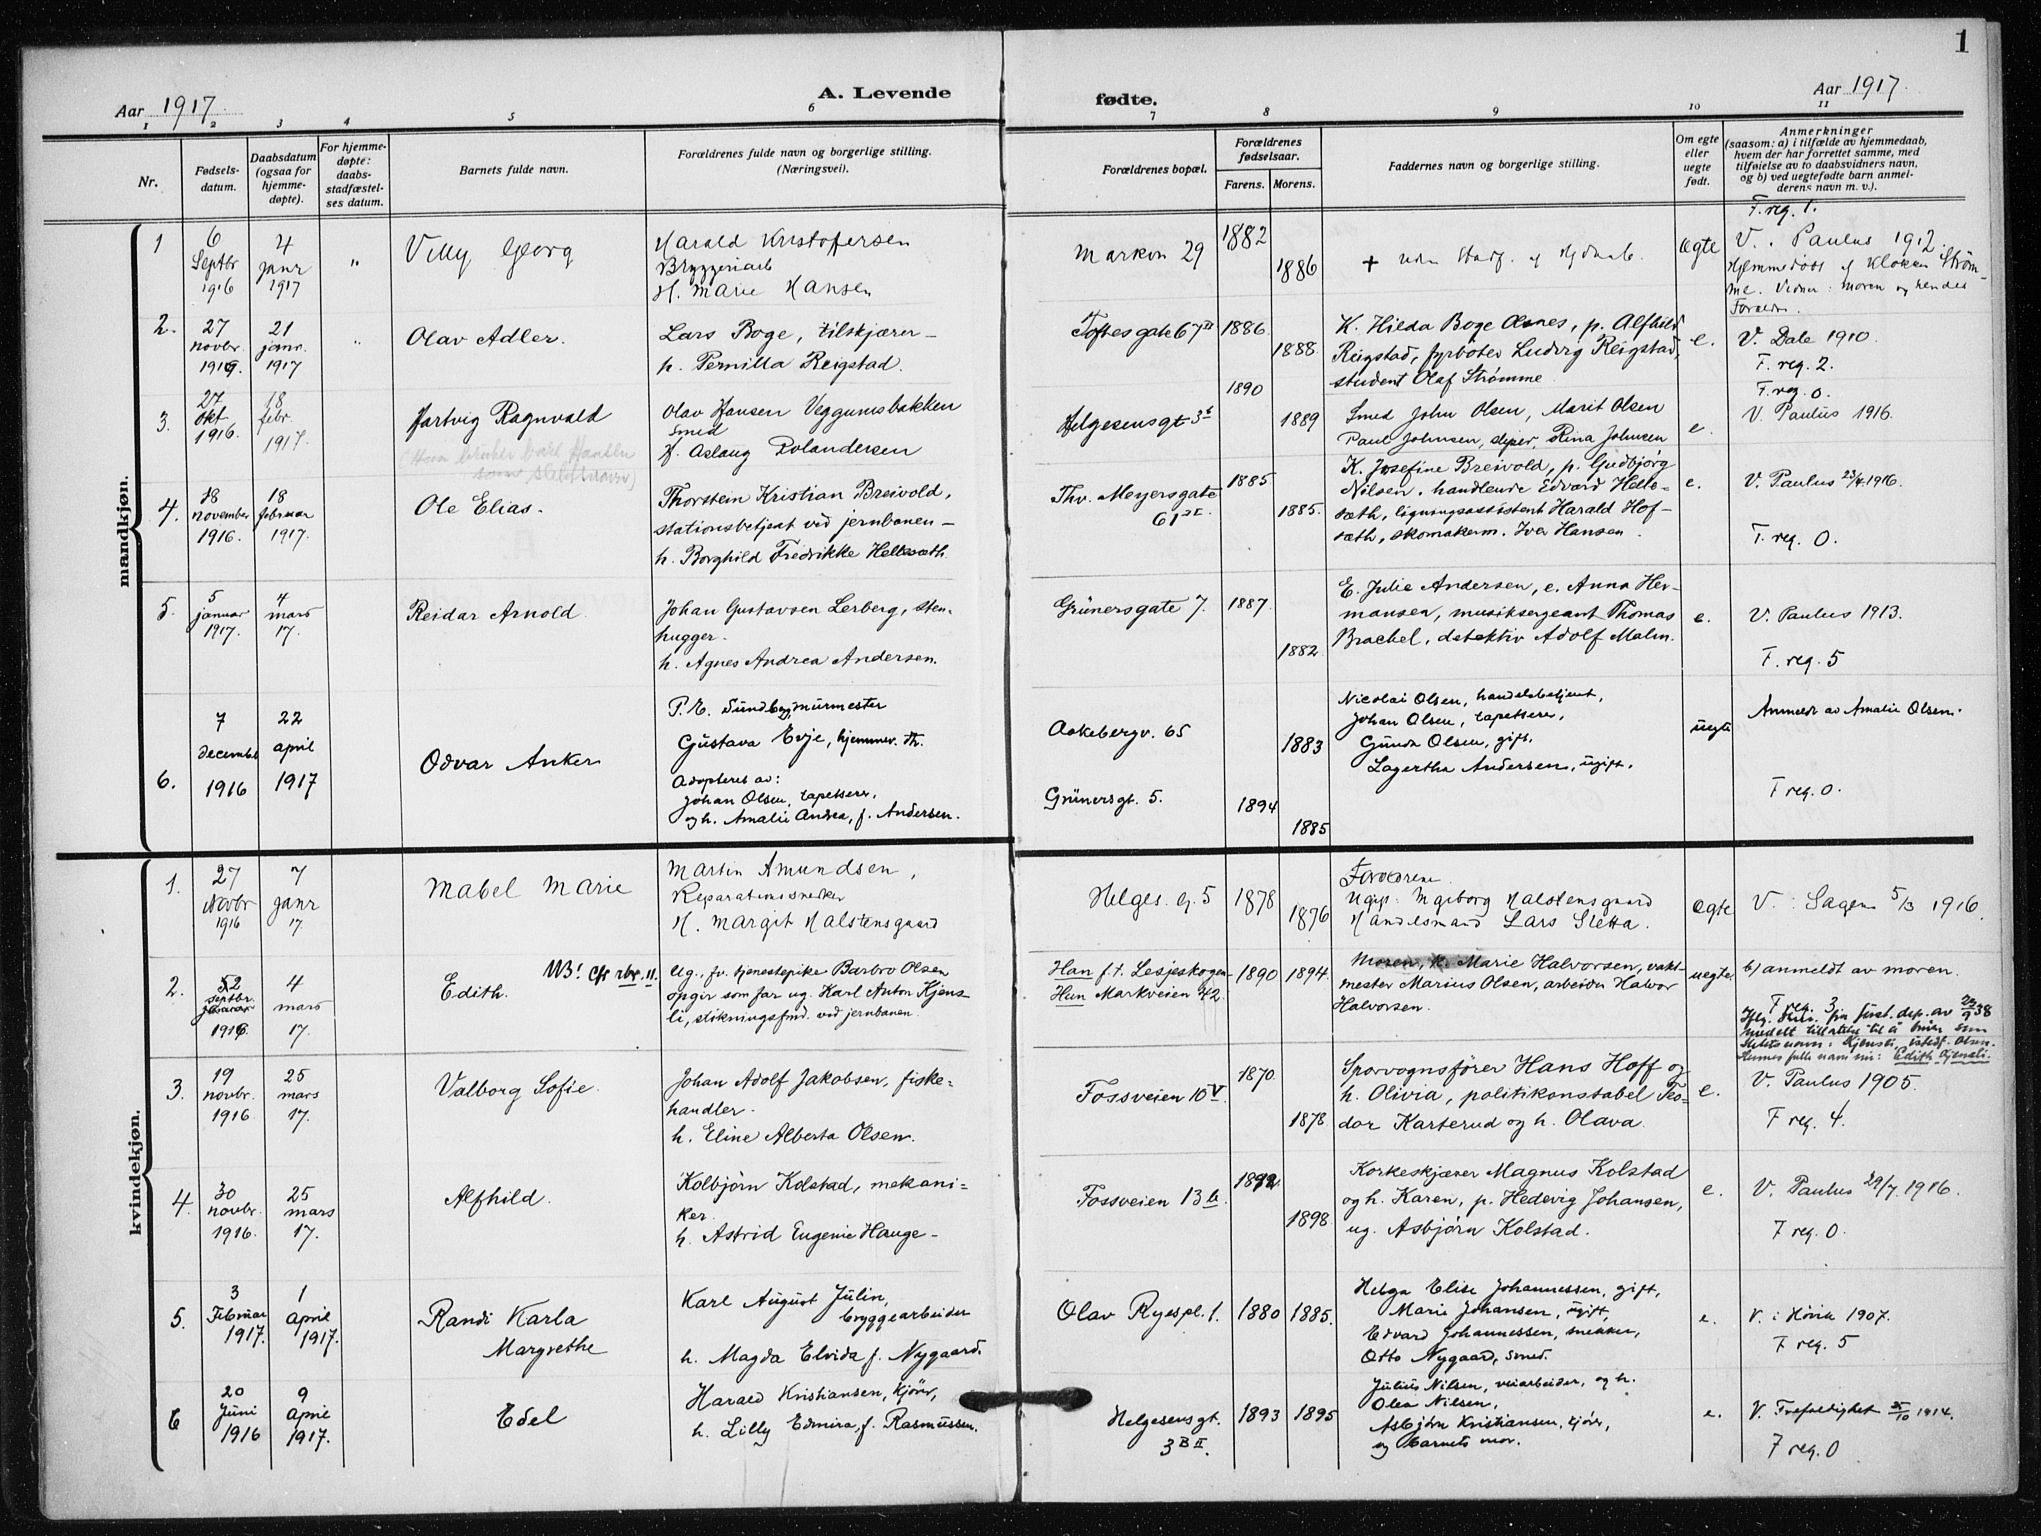 1
Aar 1917.
A. Levende
fødte.
Aar 1917.
1 2 3 4 5 6 7 8 9 10 11
Nr.
Fødsels-
datum.
Daabsdatum
(ogsaa for
hjemme-
døpte).
For hjemme-
døpte:
daabs-
stadfæstel-
ses datum.
Barnets fulde navn.
Forældrenes fulde navn og borgerlige stilling.
(Næringsvei).
Forældrenes bopæl.
Forældrenes
fødselsaar.
Farens. Morens.
Faddernes navn og borgerlige stilling.
Om egte
eller
uegte
født.
Anmerkninger
(saasom: a) i tilfælde av hjemmedaab,
hvem der har forrettet samme, med
tilføielse av to daabsvidners navn,
og b) ved uegtefødte barn anmel-
derens navn m. v.).
mandkjøn.
1
6
Septbr
1916
4
janr
1917
"
Villy Georg
Harald Kristofersen
Bryggeriarb
H. Marie Hansen
Markvn 29
1882
1886
+
Egte
F. reg. 1.
V. Paulus 1912.
Hjemmedøbt af Klokker Strøm-
me. Vidner: Moren og hendes
Forældre.
2.
27
novbr.
1916.
21
janr.
1917
"
Olav Adler.
Lars Boge, tilskjærer –
h. Pernilla Reigstad.
Toftesgate 67 II
1886.
1888.
K. Hilda Boge Osnes, p. Alfhild
Reigstad, fyrbøter Ludvig Reigstad,
student Olaf Strømme.
e.
V. Dale 1910.
F. reg. 2.
3.
27
Okt
1916.
18
febr.
1917.
Hartvig Ragnvald
(Han bruker bare Hansen
som slektsnavn)
Olav Hansen Veggumsbakken
Smed
H. Aslaug Rolandersen
Helgesensgt 3 b
1890
1889
Smed John Olsen, Marit Olsen
Paul Johnsen, sliper, Rina Johnsen
e.
F. reg. 0.
V. Paulus 1916.
4.
18
november
1916.
18
februar
1917.
Ole Elias.
Thorstein Kristian Breivold,
stationsbetjent ved jernbanen –
h. Borghild Fredrikke Hellesæth.
Thv. Meyersgate
61 II.
1885
1885.
K. Josefine Breivold, p. Gudbjørg
Nilsen, handlende Edvard Helle-
sæth, ligningsassistent Harald Hof-
sæth, skomakerm. Iver Hansen.
e.
V. Paulus 23/4.1916.
F. reg. 0.
5.
5
januar
1917.
4
mars
17.
Reidar Arnold.
Johan Gustavsen Lerberg, sten-
hugger.
h. Agnes Andrea Andersen.
Grünersgate 7.
1887.
1882.
E. Julie Andersen, e. Anna Her-
mansen, musiksergeant Thomas
Brachel, detektiv Adolf Malm.
e.
V. Paulus 1913.
F. reg. 5
6.
7
december
1916
22
april
1917
Odvar Anker
P. E. Sundby, murmester
Gustava Evje, hjemmev. th.
Adopteres av:
Johan Olsen, tapetserer,
og h. Amalie Andrea, f. Andersen.
Aakebergv. 65
Grünersgt. 5.
1883
1894
1885
Nicolai Olsen, handelsbetjent,
Johan Olsen, tapetserer,
Gunda Olsen, gift,
Lagertha Andersen, ugift.
uegte
Anmeldt av Amalie Olsen.
F reg. 0.
kvindekjøn.
1.
27
Novbr
1916
7
janr
17.
Mabel Marie
Martin Amundsen,
Reparationssnekker
H. Margit Halstensgaard
Helges. g. 5
1878
1876
Forældrene
Ugift Ingeborg Halstensgaard
Handelsmand Lars Sletta.
Egte
V. Sagene 5/3 1916.
2.
septbr.
1916.
4
mars
17.
Edith.
NB! Cfr. rbr. 11.
Ug., fv. tjenestepike Barbro Olsen
opgir som far ug. Karl Anton Kjens-
li, stikningsfmd. ved jernbanen.
Han f.t. Lesjeskogen
Hun Markveien 42.
1890
1894.
Moren, Marie Halvorsen, vakt-
mester Marius Olsen, arbeider Halvor
Halvorsen.
uegte.
b) anmeldt av moren.
F reg. 3
meddelt tillatelse til å bruke som
slektsnavn: Kjensli, istedf. Olsen.
Hennes fulle navn nu: Edith Kjensli.
3.
19
novbr.
1916
25
mars
17.
Valborg Sofie.
Johan Adolf Jakobsen, fiske-
handler.
h. Eline Alberta Olsen.
Fossveien 10 V.
1870.
1878.
Sporvognsfører Hans Hoff og
h. Olivia, politikonstabel Teo-
dor Karterud og h. Olava.
e.
V. Paulus 1905.
F reg. 4.
4.
30
novbr.
1916.
25
mars
17.
Alfhild.
Kolbjörn Kolstad, mekani-
ker.
h. Astrid Eugenie Hauge –
Fossveien 13 b.
1892.
1898.
Korkeskjærer Magnus Kolstad
og h. Karen, p. Hedevig Johansen,
ug. Asbjörn Kolstad.
e.
V. Paulus 29/7. 1916.
F reg. 0.
5.
3
Februar
1917.
1
April
1917.
Randi Karla
Margrethe
Karl August Julin,
bryggearbeider
h. Magda Elvida f. Nygaard.
Olav Ryespl. 1.
1880
1885.
Helga Elise Johannessen, gift,
Marie Johansen, ugift,
Edvard Johannessen, snekker,
Otto Nygaard, smed.
e.
V. i Høvik 1907.
F reg. 5
6
20
Juni
1916
9
April
1917.
Edel
Harald Kristiansen, kjører,
h. Lilly Edmira, f. Rasmussen.
Helgesensgt.
3 B II.
1893
1895
Julius Nilsen, veiarbeider, og h.
Olea Nilsen,
Asbjørn Kristiansen, kjører,
og barnets mor.
e.
V. Trefoldighet 25/10 1914.
F reg. 0